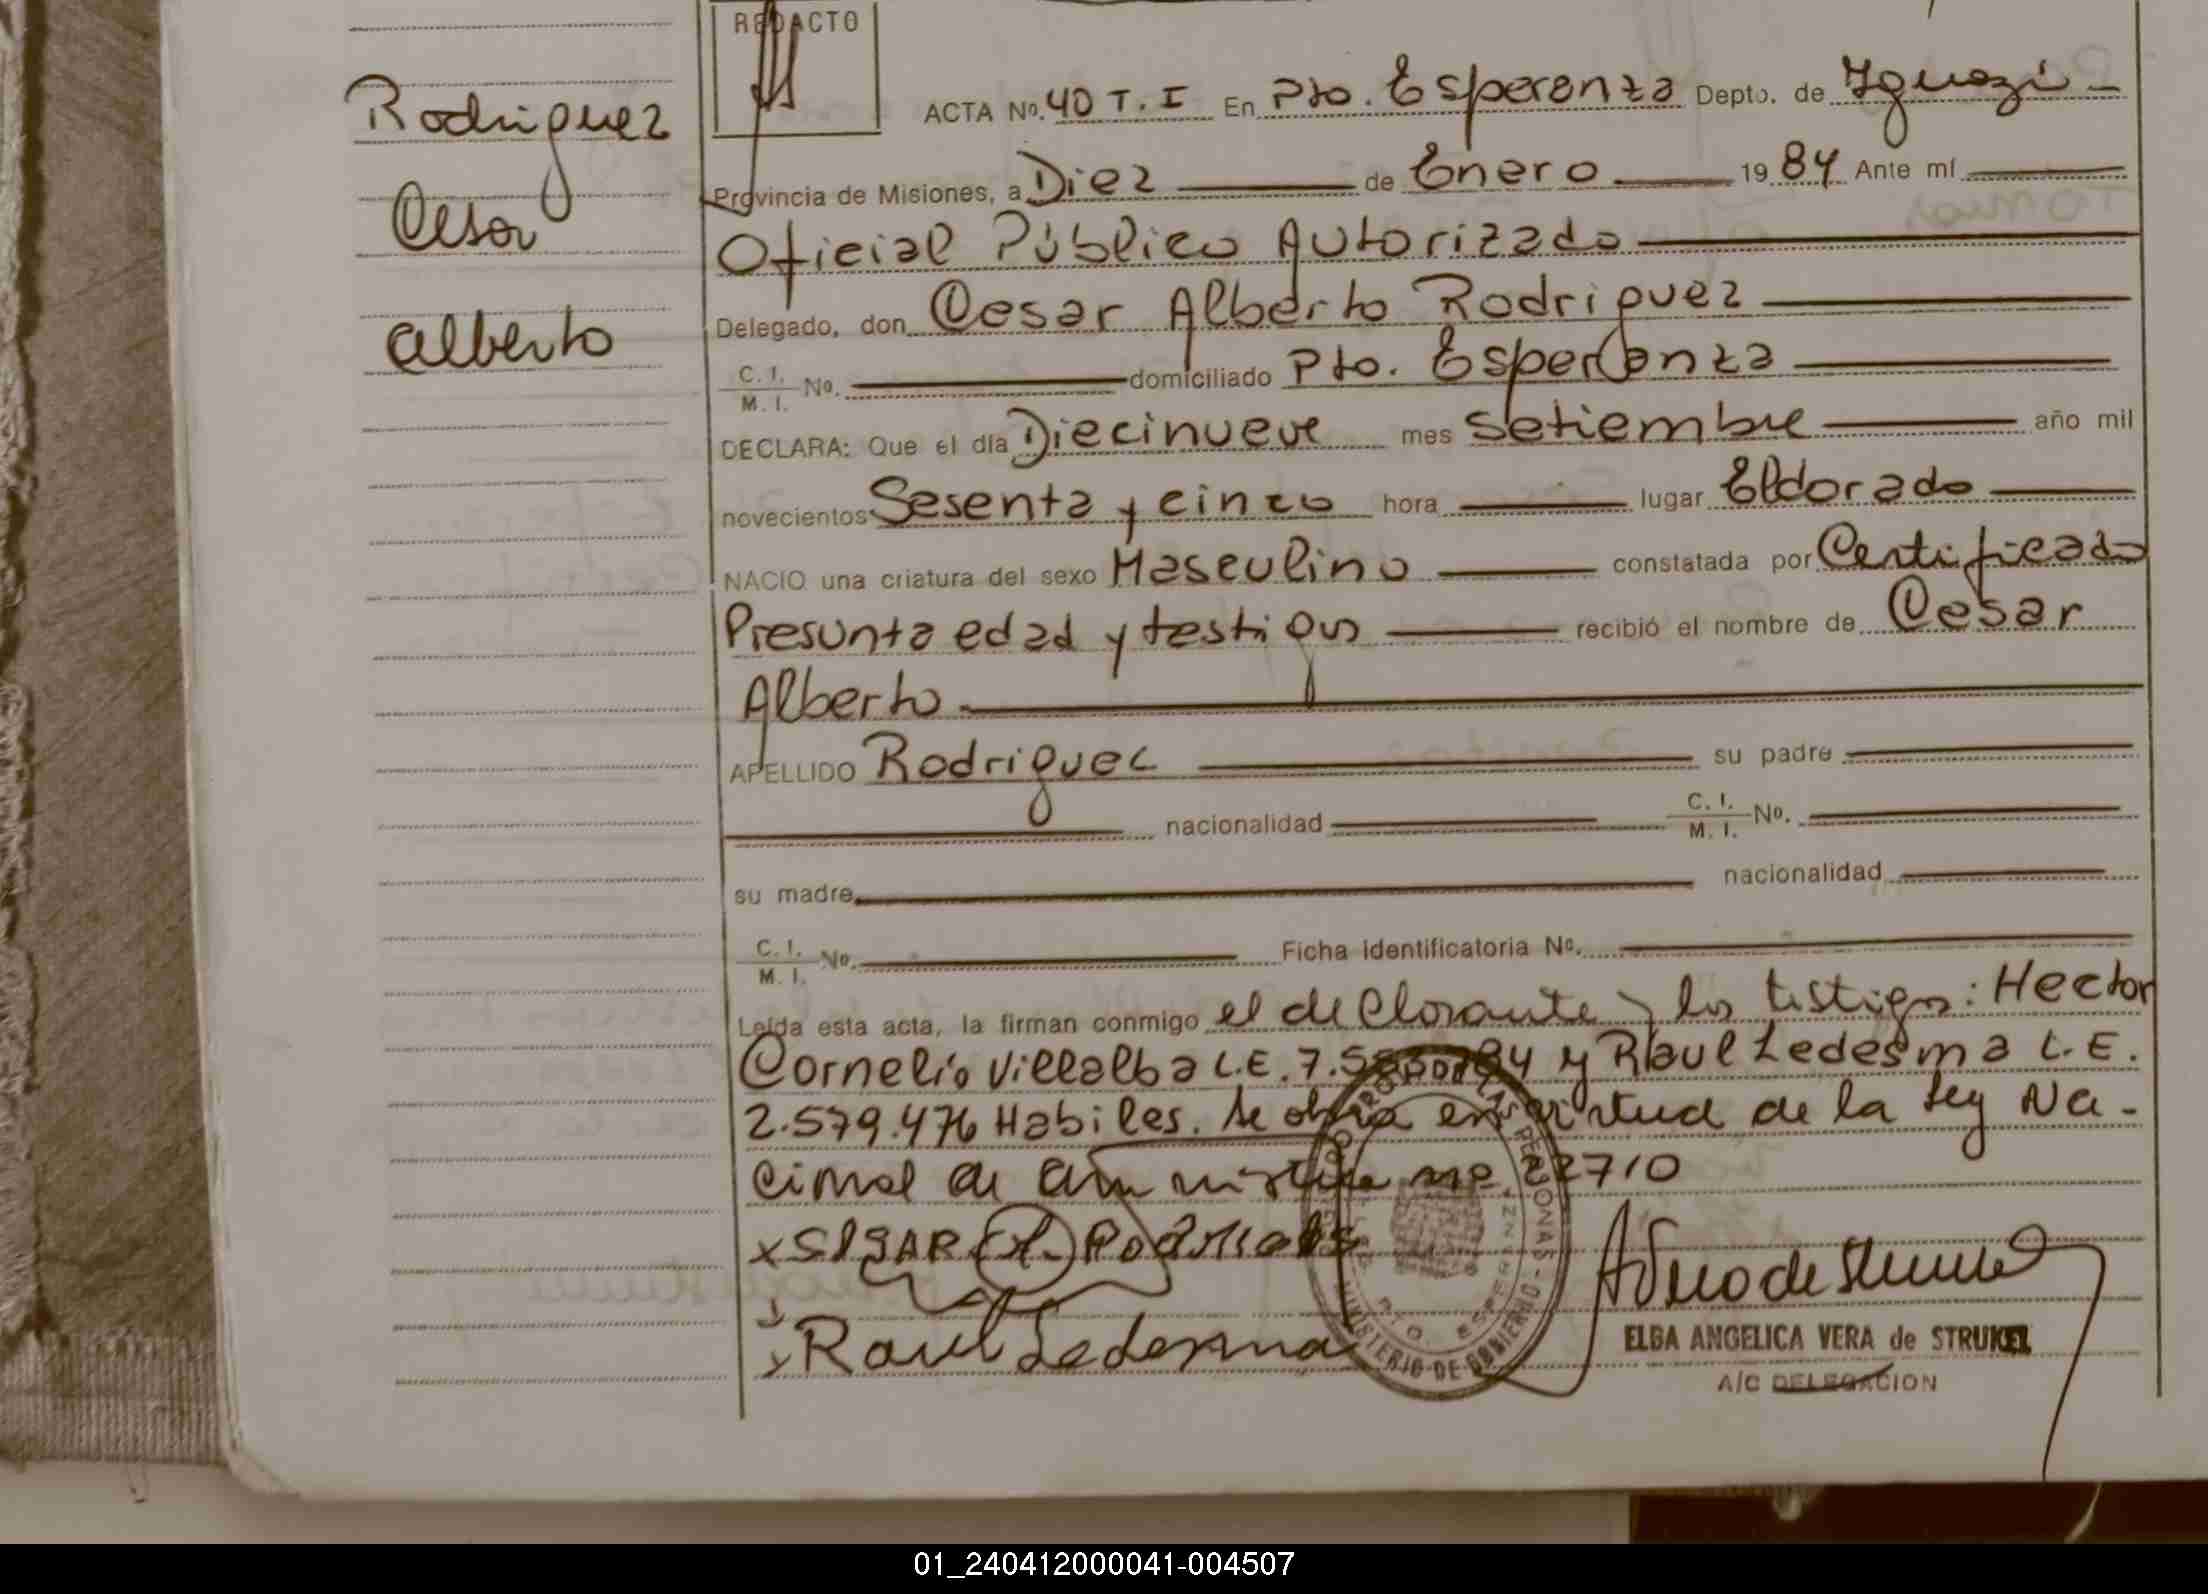 REDACTO
Rodriguez
Cesar
Alberto
ACTA Nº. 40 T. I En Pto. Esperanza Depto. de Iguazú
Provincia de Misiones, a Diez de Enero 1984 Ante mí
Oficial Público Autorizado
Delegado, don Cesar Alberto Rodriguez
C. I. / M. I. Nº. domiciliado Pto. Esperanza
DECLARA: Que el día Diecinueve mes Setiembre año mil
novecientos Sesenta y cinco hora lugar Eldorado
NACIO una criatura del sexo Masculino constatada por Certificado
Presunta edad y testigos recibió el nombre de Cesar
Alberto
APELLIDO Rodriguez su padre
nacionalidad C. I. / M. I. Nº.
su madre nacionalidad
C. I. / M. I. Nº. Ficha Identificatoria Nº.
Leída esta acta, la firman conmigo el declarante y los testigos: Hector
Cornelio Villalba L.E. y Raul Ledesma L.E.
2.579.476 Habiles. Se obra en virtud de la Ley Na-
cional de Amnistia nº 22710
Raul Ledesma
PTO. ESPERANZA
MINISTERIO DE GOBIERNO
ELBA ANGELICA VERA de STRUKEL
A/C DELEGACION
01_240412000041-004507